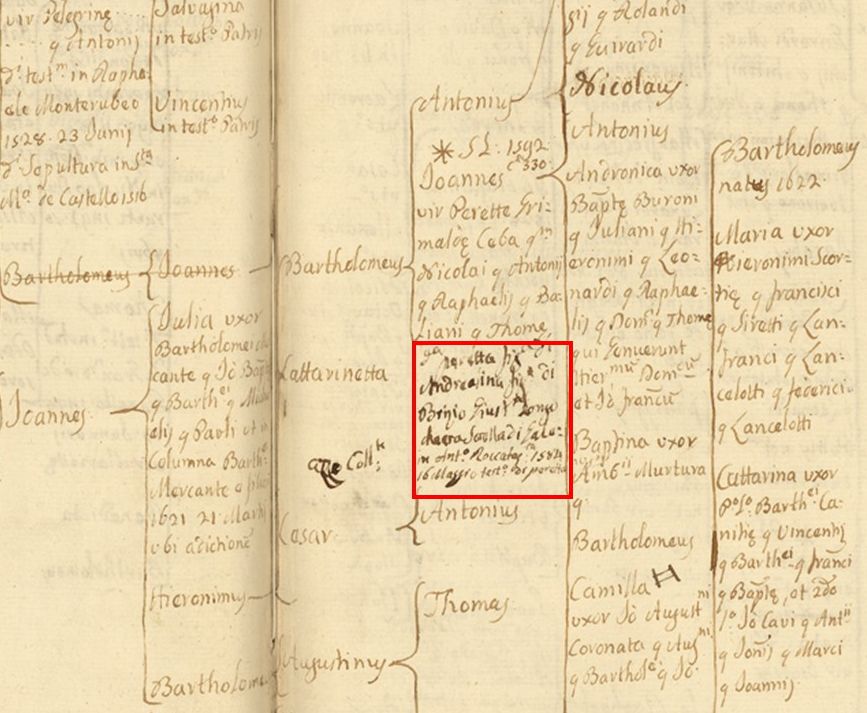 viv Pelegrine
q Antonij
d. test.m in Rapha
ele Monterubeo
1528. 23 Junij
d. Sepultura in S.ta
M.a de Castello 1516
Bartholomeus
Joannes
Salvagina
in test.o Patris
Vincentius
in test.o Patris
Joannes
Julia uxor
Bartholomei
cante q Jo Bapt
q Barth.ei q
elis q Pauli et in
Columna Barth.
Mercante
1621 21 Martij
ubi adictione
Hieronimus
Bartholomeus
Bartholomeus
Cattarinetta
Coll.
Cesar
Augustinus
Antonius
SL. 1592
Joannes C. 330
vir Perette Gri-
maldę Ceba q.m
Nicolai q Antonij
q Raphaelis q Ba-
liani q Thome
peretta fig.a di
Andreasina fig.a di
Brizio Giust.
in Ant.o Roccatag. 1584
16 Maggio test.o di peretta
Antonius
Thomas
q Rolandi
q Euirardi
Nicolaus
Antonius
Andronica uxor
Baptę Buroni
q Juliani q Hi-
eronimi q Leo-
nardi q Raphae-
lis q Dom.ci q Thome
qui genuerunt
Hier.mum Dom.cum
et Jo francum
Baptina uxor
Amb.ii Murtura
q.
Bartholomeus
Camilla
uxor Jo August.ni
Coronata q Aug.ni
q Barthol.ei q Jo.
Bartholomeus
natus 1622
Maria uxor
Hieronimi Scor-
tię q francisci
q Siretti q Lan-
franci q Lan-
celotti q federici
q Lancelotti
Cattarina uxor
p.o l.o Barth.ei Ca-
nitię q Vincentij
q Barth.ei q franci
q Baptę, et 2do
l.o Jo Cavi q Ant.ii
q Jonis q Marci
q Joannis